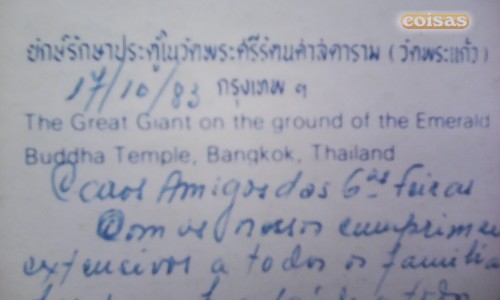 coisas
ยักษ์รักษาประตูในวัดพระศรีรัตนศาสดาราม (วัดพระแก้ว)
17/10/83 กรุงเทพ ฯ
The Great Giant on the ground of the Emerald
Buddha Temple, Bangkok, Thailand
Caros Amigos das 6as feiras
Com os nossos cumprimen
extensivos a todos os familia